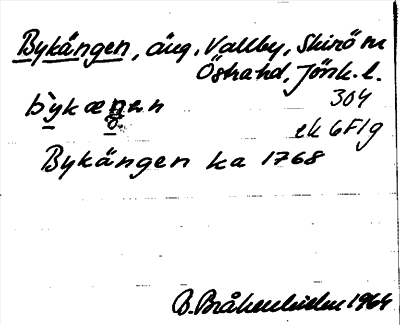 Bykängen, äng, Vallby, Skirö sn
Östra hd, Jönk. l.
304
bykæŋen
ek 6F1g
Bykängen ka 1768
B. Bråkenhielm 1964